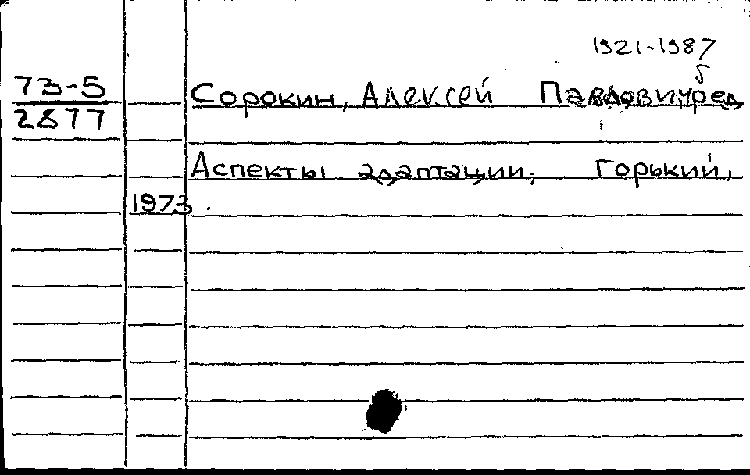 1921-1987
73-5 Сорокин, Алексей Павлович, ред
2877
Аспекты адаптации, Горький,
1973.